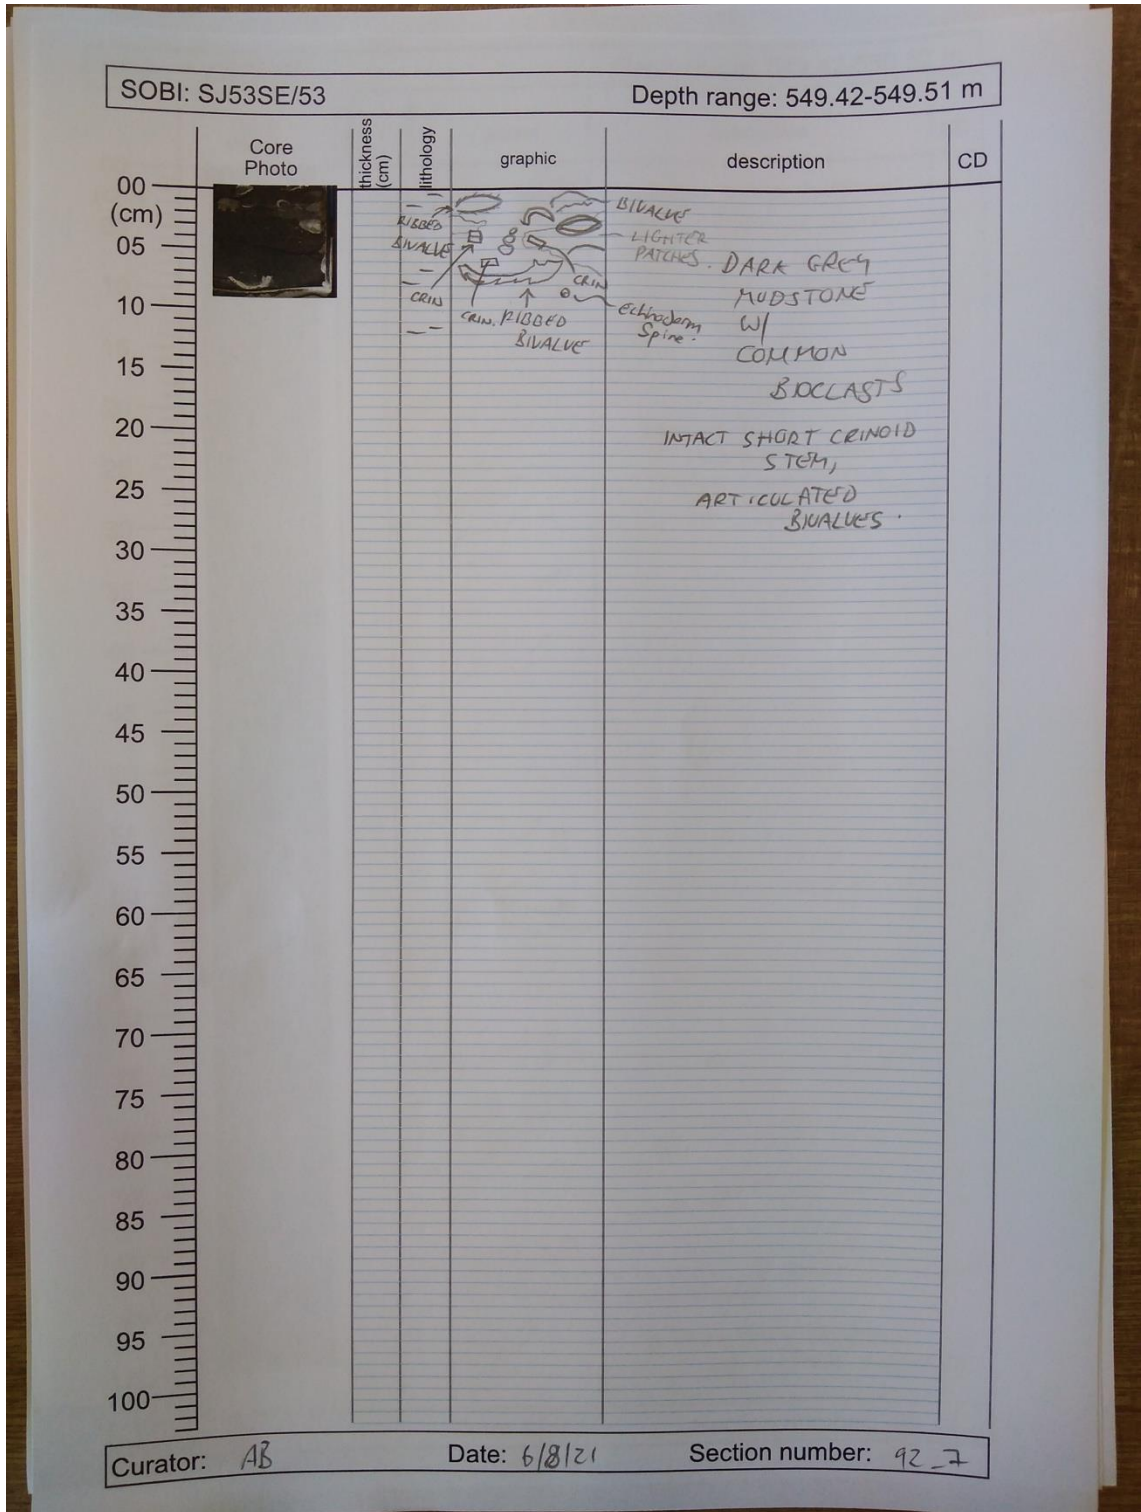 SOBI: SJ53SE/53
Depth range: 549.42-549.51 m
Core
Photo
thickness
(cm)
lithology
graphic
description
CD
00
(cm)
05
10
15
20
25
30
35
40
45
50
55
60
65
70
75
80
85
90
95
100
RIBBED
BIVALVE
CRIN
CRIN.
RIBBED
BIVALVE
CRIN
BIVALVE
LIGHTER
PATCHES.
Echinoderm
Spine.
DARK GREY
MUDSTONE
W/
COMMON
BIOCLASTS
INTACT SHORT CRINOID
STEM,
ARTICULATED
BIVALVES.
Curator: AB
Date: 6/8/21
Section number: 92_7